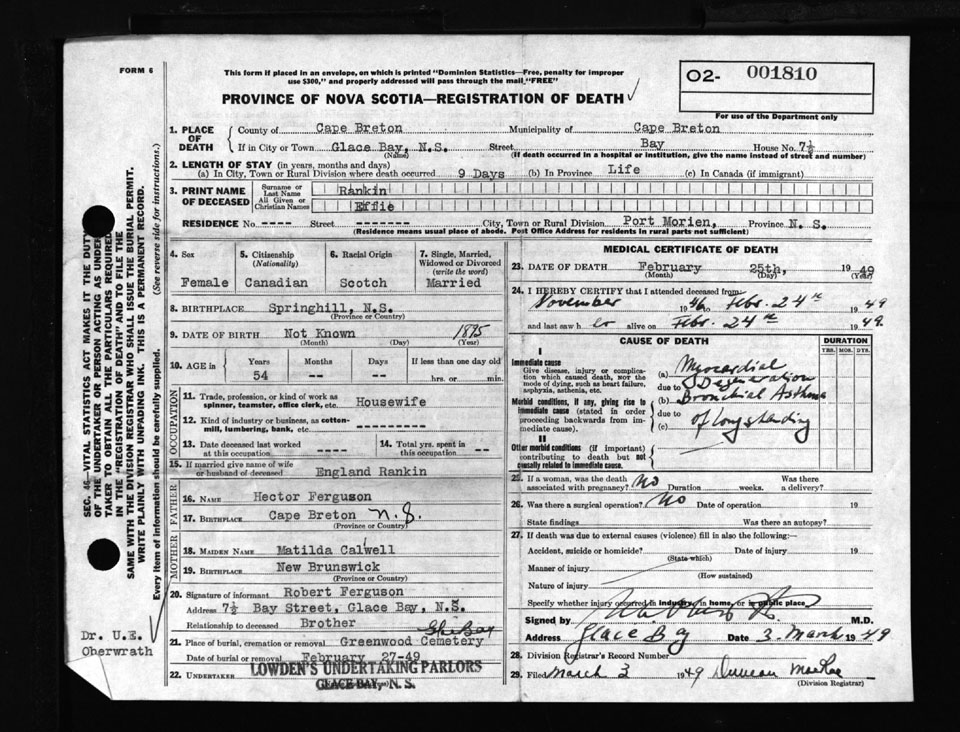 FORM 6
This form if placed in an envelope, on which is printed "Dominion Statistics—Free, penalty for improper
use $300," and properly addressed will pass through the mail "FREE"
O2- 001810
PROVINCE OF NOVA SCOTIA—REGISTRATION OF DEATH
For use of the Department only
1. PLACE OF DEATH
County of Cape Breton Municipality of Cape Breton
If in City or Town Glace Bay, N.S. Street Bay House No. 7½
(Name) (If death occurred in a hospital or institution, give the name instead of street and number)
2. LENGTH OF STAY (in years, months and days)
(a) In City, Town or Rural Division where death occurred 9 Days (b) In Province Life (c) In Canada (if immigrant)
3. PRINT NAME OF DECEASED
Surname or Last Name Rankin
All Given or Christian Names Effie
RESIDENCE No. ---- Street -------- City, Town or Rural Division Port Morien, Province N. S.
(Residence means usual place of abode. Post Office Address for residents in rural parts not sufficient)
4. Sex
Female
5. Citizenship
(Nationality)
Canadian
6. Racial Origin
Scotch
7. Single, Married,
Widowed or Divorced
(write the word)
Married
8. BIRTHPLACE Springhill, N.S.
(Province or Country)
9. DATE OF BIRTH Not Known 1895
(Month) (Day) (Year)
10. AGE in
Years Months Days If less than one day old
54 -- -- hrs. or min.
OCCUPATION
11. Trade, profession, or kind of work as
spinner, teamster, office clerk, etc. Housewife
12. Kind of industry or business, as cotton-
mill, lumbering, bank, etc. ----------
13. Date deceased last worked
at this occupation -----
14. Total yrs. spent in
this occupation --
15. If married give name of wife
or husband of deceased England Rankin
FATHER
16. NAME Hector Ferguson
17. BIRTHPLACE Cape Breton N.S.
(Province or Country)
MOTHER
18. MAIDEN NAME Matilda Calwell
19. BIRTHPLACE New Brunswick
(Province or Country)
20. Signature of informant Robert Ferguson
Address 7½ Bay Street, Glace Bay, N.S.
Relationship to deceased Brother
Glace Bay
21. Place of burial, cremation or removal Greenwood Cemetery
Date of burial or removal February 27-49
22. UNDERTAKER LOWDEN'S UNDERTAKING PARLORS
GLACE BAY, N. S.
MEDICAL CERTIFICATE OF DEATH
23. DATE OF DEATH February 25th, 1949
(Month) (Day) (Year)
24. I HEREBY CERTIFY that I attended deceased from:
November 1946 to Febr. 24th 1949
and last saw h er alive on Febr. 24th 1949.
CAUSE OF DEATH DURATION
YRS. MOS. DYS.
I
Immediate cause
Give disease, injury or complica-
tion which caused death, NOT the
mode of dying, such as heart failure,
asphyxia, asthenia, etc.
(a) Myocardial
due to Degeneration
Morbid conditions, if any, giving rise to
immediate cause (stated in order
proceeding backwards from im-
mediate cause).
(b) Bronchial Asthma
due to
(c) of long standing
II
Other morbid conditions (if important)
contributing to death but not
causally related to immediate cause.
25. If a woman, was the death
associated with pregnancy? No Duration weeks. Was there
a delivery?
26. Was there a surgical operation? No Date of operation 19
State findings Was there an autopsy?
27. If death was due to external causes (violence) fill in also the following:—
Accident, suicide or homicide? Date of injury 19
(State which)
Manner of injury
(How sustained)
Nature of injury
Specify whether injury occurred in industry, in home, or in public place
Signed by M.D.
Address Glace Bay Date 3. March 1949
28. Division Registrar's Record Number
29. Filed March 3 1949 Duncan MacRae
(Division Registrar)
SEC. 46—VITAL STATISTICS ACT MAKES IT THE DUTY
OF THE UNDERTAKER OR PERSON ACTING AS UNDER-
TAKER TO OBTAIN ALL THE PARTICULARS REQUIRED
IN THE "REGISTRATION OF DEATH" AND TO FILE THE
SAME WITH THE DIVISION REGISTRAR WHO SHALL ISSUE THE BURIAL PERMIT.
WRITE PLAINLY WITH UNFADING INK. THIS IS A PERMANENT RECORD.
Every item of information should be carefully supplied. (See reverse side for instructions.)
Dr. U.E.
Oberwrath